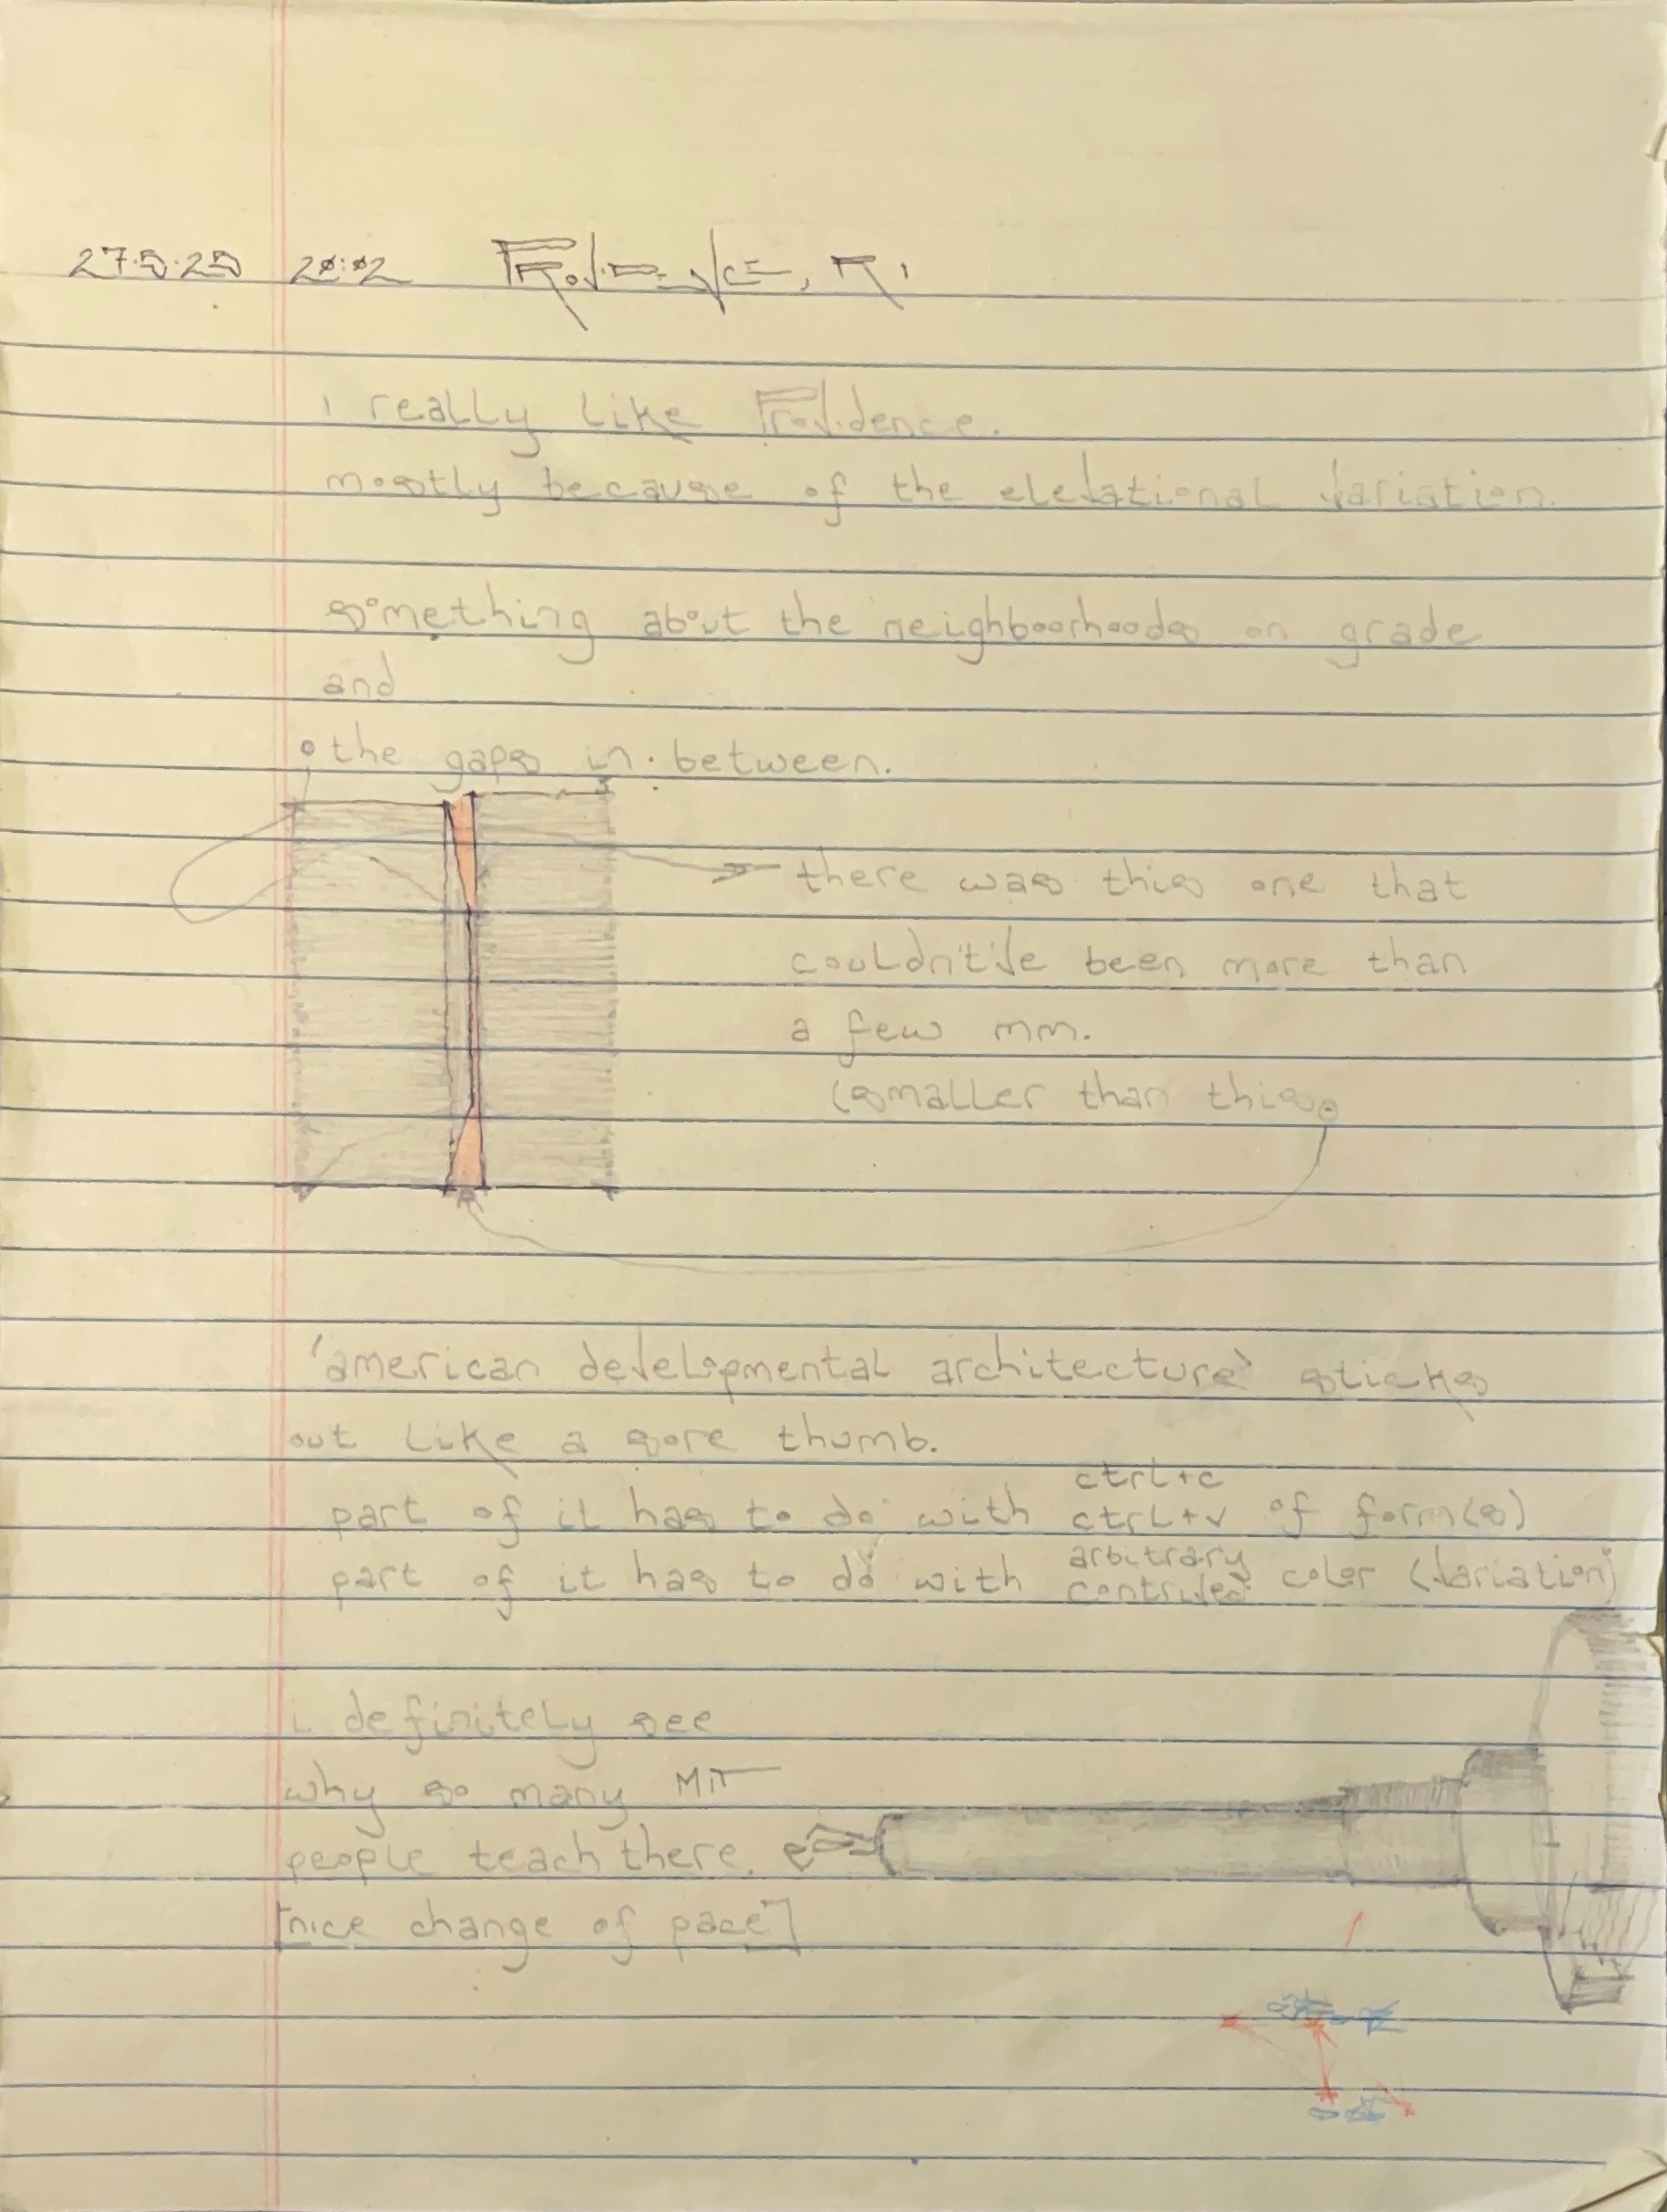 27.5.25 20:02 Providence, RI
i really like Providence.
mostly because of the elevational variation.
something about the neighboorhoods on grade
and
the gaps in-between.
there was this one that
couldn't've been more than
a few mm.
(smaller than this
'american developmental architecture' sticks
out like a sore thumb.
part of it has to do with ctrl+c ctrl+v of form(s)
part of it has to do with arbitrary contrived color (variation)
i definitely see
why so many MIT
people teach there.
[nice change of pace]